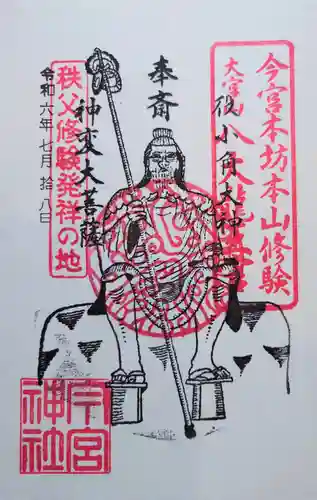 今宮本坊本山修験
大宮
八大龍
役小角大神
奉斎
神変大菩薩
秩父修験発祥の地
令和六年七月拾八日
今宮神社